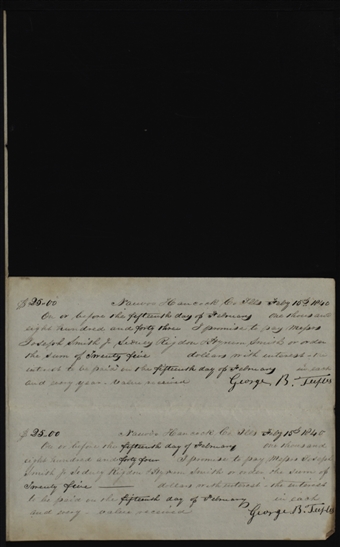 $25.00 Nauvoo Hancock Co Ills Feby 15th 1840
On or before the fifteenth day of February one thousand
eight hundred and forty three I promise to pay Messrs
Joseph Smith Jr Sidney Rigdon Hyrum Smith or order
the sum of Twenty five dollars with interest the
interest to be paid in the fifteenth day of February in each
and every year value received George B. Tufts
$25.00 Nauvoo Hancock Co Ills Feby 15th 1840
On or before the fifteenth day of February one thousand
eight hundred and forty four I promise to pay Messrs Joseph
Smith Jr Sidney Rigdon Hyrum Smith or order the sum of
Twenty five dollars with interest the interest
to be paid on the fifteenth day of February in each
and every value received George B. Tufts